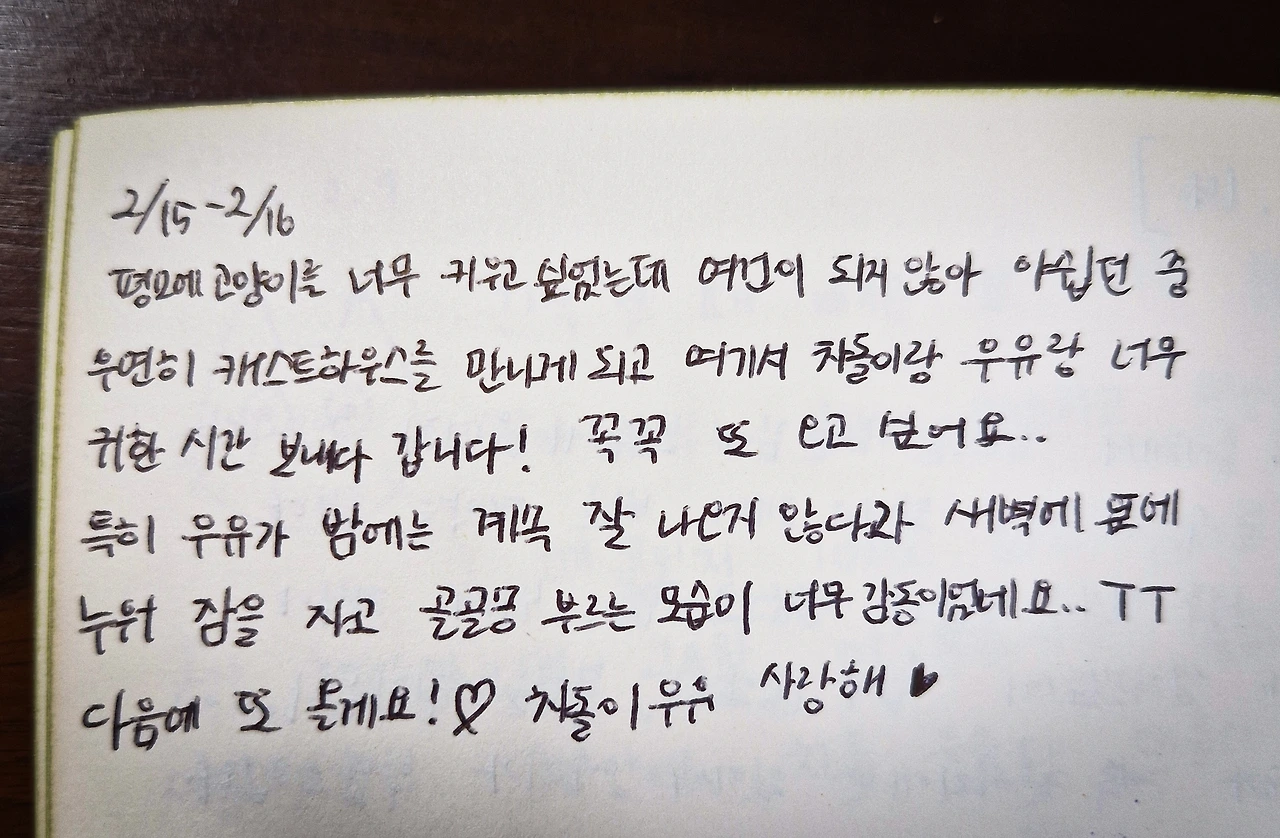 2/15 - 2/16
평소에 고양이를 너무 키우고 싶었는데 여건이 되지 않아 아쉽던 중
우연히 캐스트하우스를 만나게 되고 여기서 차돌이랑 우유랑 너무
귀한 시간 보내다 갑니다! 꼭꼭 또 오고 싶어요..
특히 우유가 밤에는 계속 잘 나오지 않다가 새벽에 옆에
누워 잠을 자고 골골송 부르는 모습이 너무 감동이었네요.. ㅜㅜ
다음에 또 올게요!♡ 차돌이 우유 사랑해 ♥